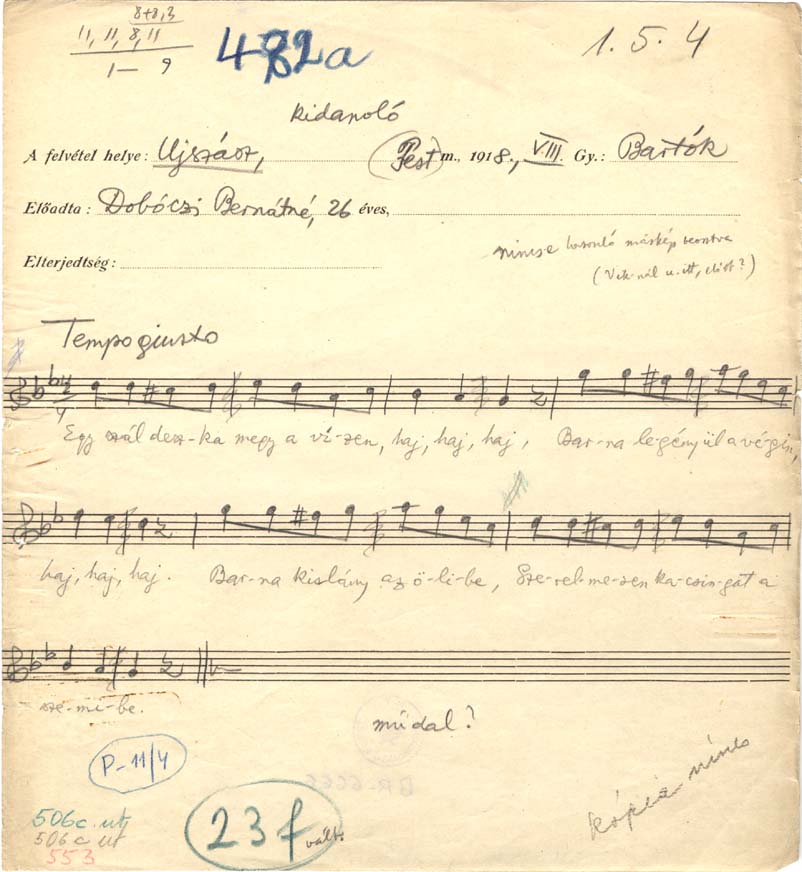 8+8,3
11, 11, 8, 11
1 — 9
482a
1. 5. 4
kidanoló
A felvétel helye: Ujszász, (Pest) m., 1918., VIII. Gy.: Bartók
Előadta: Dobóczi Bernátné, 26 éves,
Elterjedtség:
nincse hasonló máskép
(Vik-nál u. itt, előst?)
Tempo giusto
4/4
Egy szál desz-ka megy a ví-zen, haj, haj, haj, Bar-na le-gény ül a vé-gin,
haj, haj, haj. Bar-na kislány az ö-li-be, Sze-rel-me-sen ka-csin-gat a
sze-mi-be.
műdal?
P-11/4
506c. ut
506 c ut
553
23f
vált.
kópia nincs